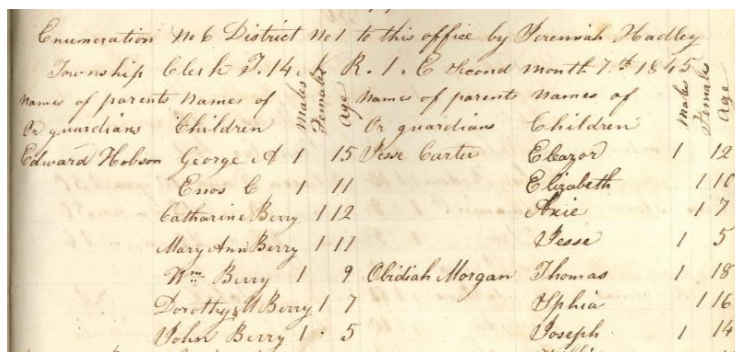 Enumeration No 6 District No 1 to this office by Jeremiah Hadley
Township Clerk T. 14. N R. 1. E Second month 7.th 1845
Names of parents Names of Males Females Age Names of parents Names of Males Females Age
Or guardians Children Or guardians Children
Edward Hobson George A 1 15 Jesse Carter Eleazor 1 12
Enos C 1 11 Elizabeth 1 10
Catharine Berry 1 12 Axie 1 7
Mary Ann Berry 1 11 Jesse 1 5
Wm Berry 1 9 Obidiah Morgan Thomas 1 18
Dorothy Berry 1 7 1 16
John Berry 1 5 Joseph 1 14